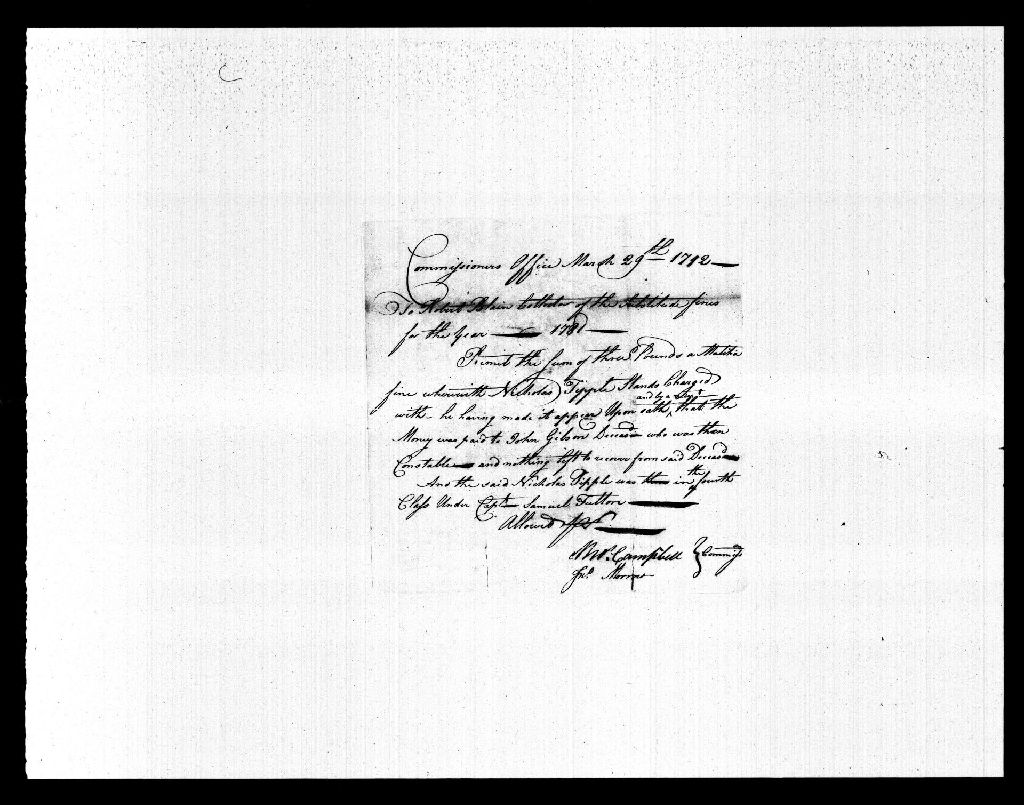 Commissioners Office March 29th 1782
To Robert Blain Collector of the Militia fines
for the Year 1781
Remit the Sum of three Pounds a Malitia
fine wherewith Nicholas Tipple Stands Charged
with - he having made it appear Upon oath, and by a that the
Money was paid to John Gibson Deceasd who was then
Constable and nothing left to recover from said Deceasd
And the said Nicholas Tipple was then in the fourth
Class Under Capt Samuel Fulton
Allowed
Campbell } Commiss
Jno Morrow